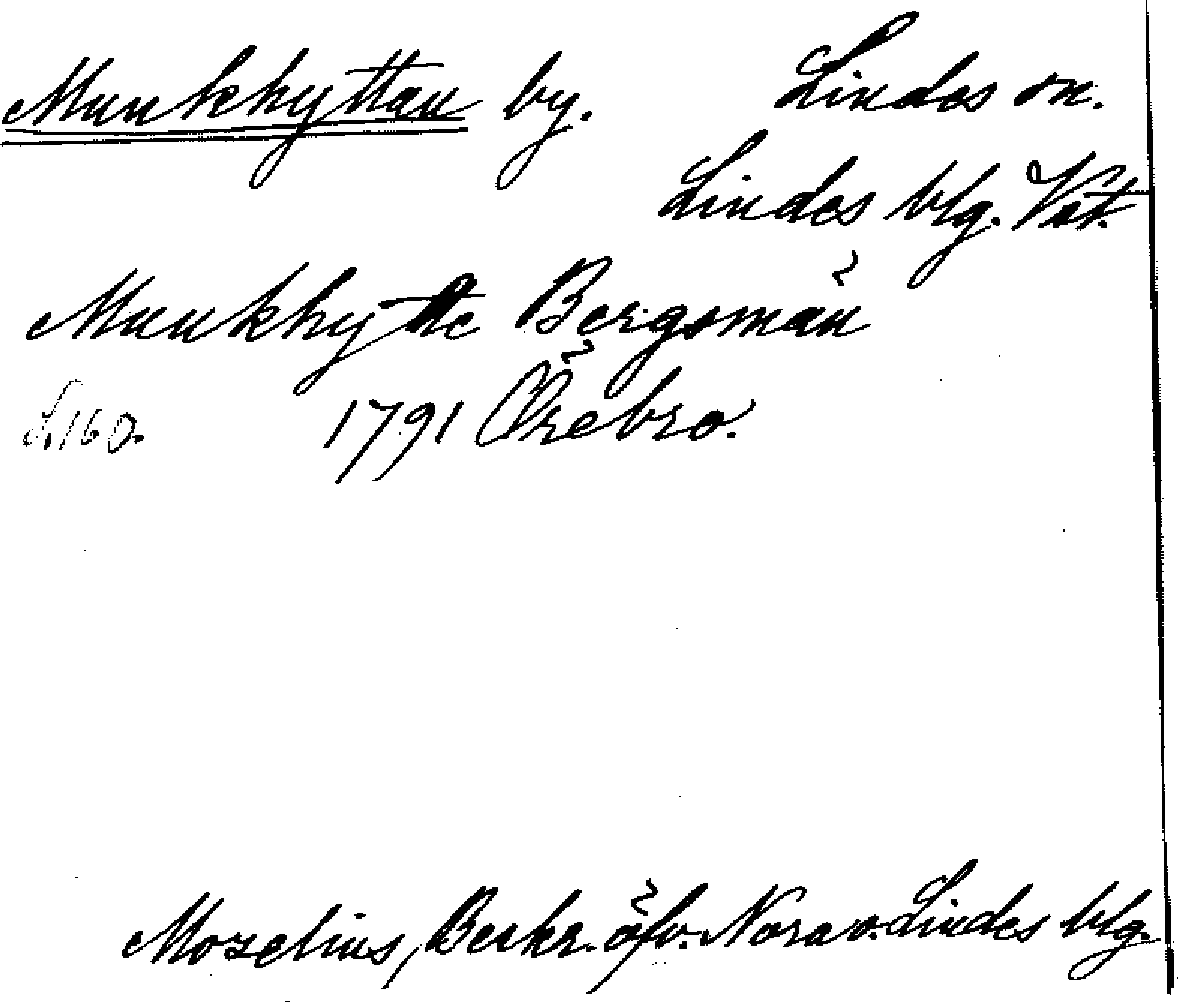 Munkhyttan by. Lindes sn.
Lindes blg. Vstm.
Munkhytte Bergsmän
S. 160. 1791 Örebro.
Mozelius, Beskr. öfv. Nora o. Lindes blg.